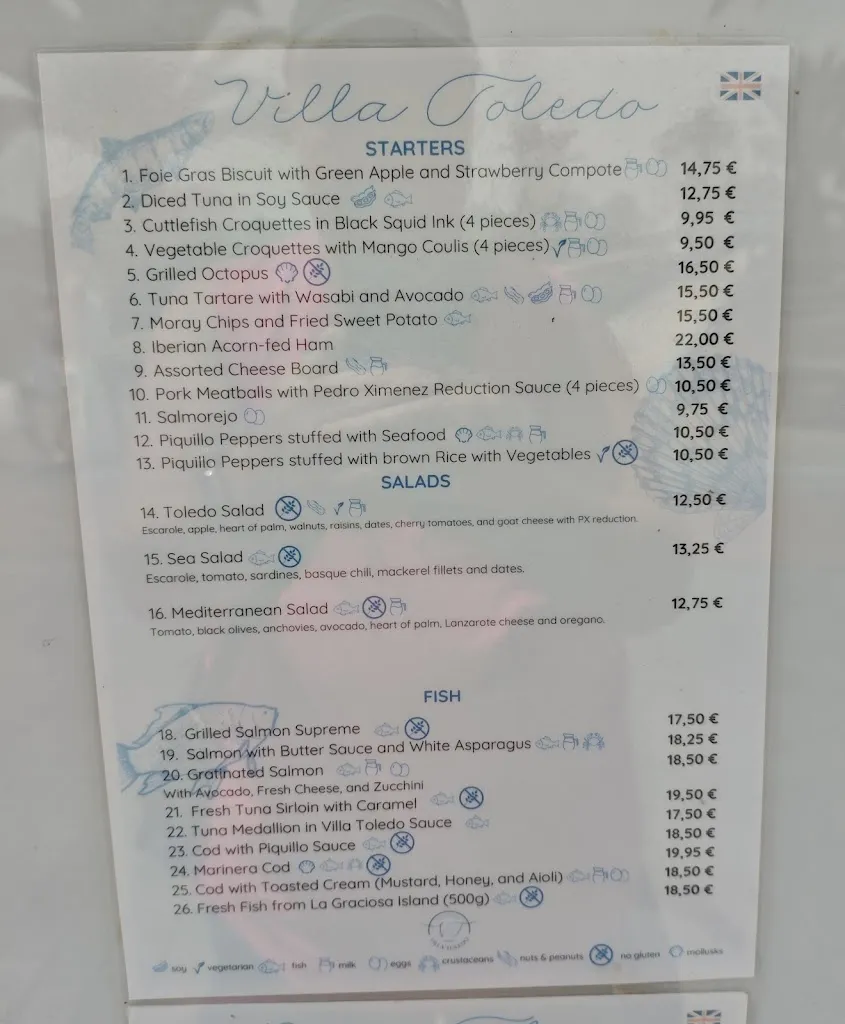 Villa Toledo
STARTERS
1. Foie Gras Biscuit with Green Apple and Strawberry Compote 14,75 €
2. Diced Tuna in Soy Sauce 12,75 €
3. Cuttlefish Croquettes in Black Squid Ink (4 pieces) 9,95 €
4. Vegetable Croquettes with Mango Coulis (4 pieces) 9,50 €
5. Grilled Octopus 16,50 €
6. Tuna Tartare with Wasabi and Avocado 15,50 €
7. Moray Chips and Fried Sweet Potato 15,50 €
8. Iberian Acorn-fed Ham 22,00 €
9. Assorted Cheese Board 13,50 €
10. Pork Meatballs with Pedro Ximenez Reduction Sauce (4 pieces) 10,50 €
11. Salmorejo 9,75 €
12. Piquillo Peppers stuffed with Seafood 10,50 €
13. Piquillo Peppers stuffed with brown Rice with Vegetables 10,50 €
SALADS
14. Toledo Salad 12,50 €
Escarole, apple, heart of palm, walnuts, raisins, dates, cherry tomatoes, and goat cheese with PX reduction.
15. Sea Salad 13,25 €
Escarole, tomato, sardines, basque chili, mackerel fillets and dates.
16. Mediterranean Salad 12,75 €
Tomato, black olives, anchovies, avocado, heart of palm, Lanzarote cheese and oregano.
FISH
18. Grilled Salmon Supreme 17,50 €
19. Salmon with Butter Sauce and White Asparagus 18,25 €
20. Gratinated Salmon 18,50 €
With Avocado, Fresh Cheese, and Zucchini
21. Fresh Tuna Sirloin with Caramel 19,50 €
22. Tuna Medallion in Villa Toledo Sauce 17,50 €
23. Cod with Piquillo Sauce 18,50 €
24. Marinera Cod 19,95 €
25. Cod with Toasted Cream (Mustard, Honey, and Aioli) 18,50 €
26. Fresh Fish from La Graciosa Island (500g) 18,50 €
soy vegetarian fish milk eggs crustaceans nuts & peanuts no gluten mollusks